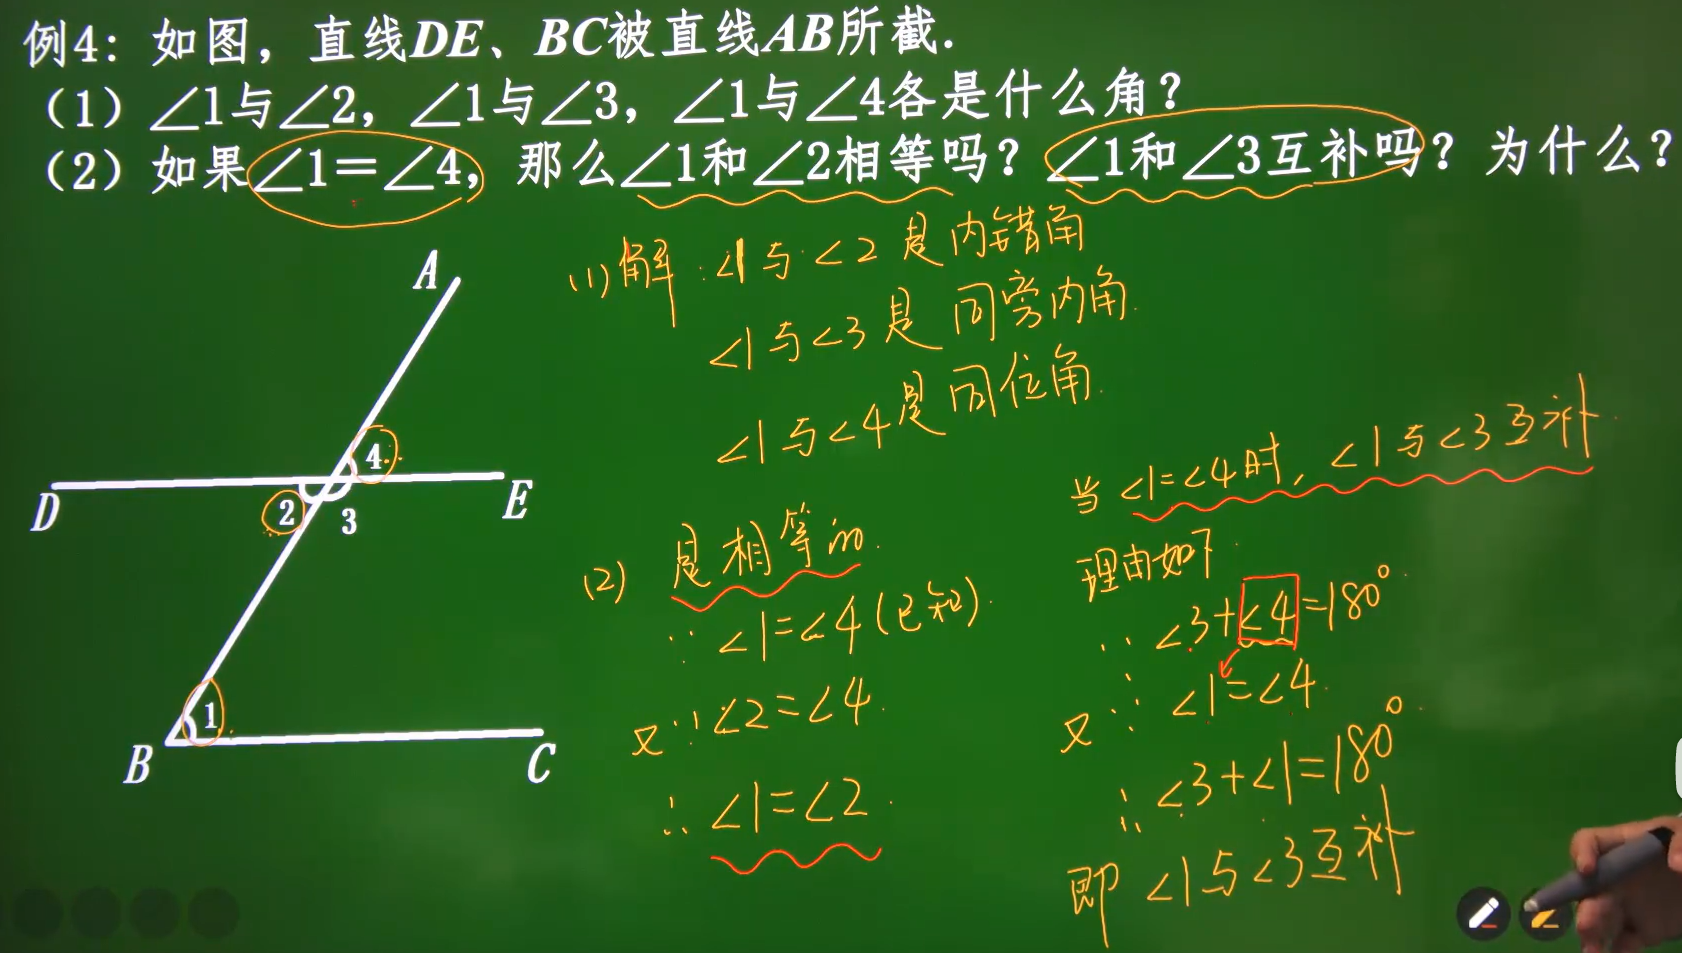 例4：如图，直线DE、BC被直线AB所截.
（1）∠1与∠2，∠1与∠3，∠1与∠4各是什么角？
（2）如果∠1＝∠4，那么∠1和∠2相等吗？∠1和∠3互补吗？为什么？
A
4
D
2
3
E
1
B
C
(1)解：∠1与∠2是内错角
∠1与∠3是同旁内角.
∠1与∠4是同位角.
(2) 是相等的.
∵∠1=∠4(已知).
又∵∠2=∠4.
∴∠1=∠2.
当∠1=∠4时，∠1与∠3互补.
理由如下.
∵∠3+∠4=180°.
又∵∠1=∠4.
∴∠3+∠1=180°.
即∠1与∠3互补